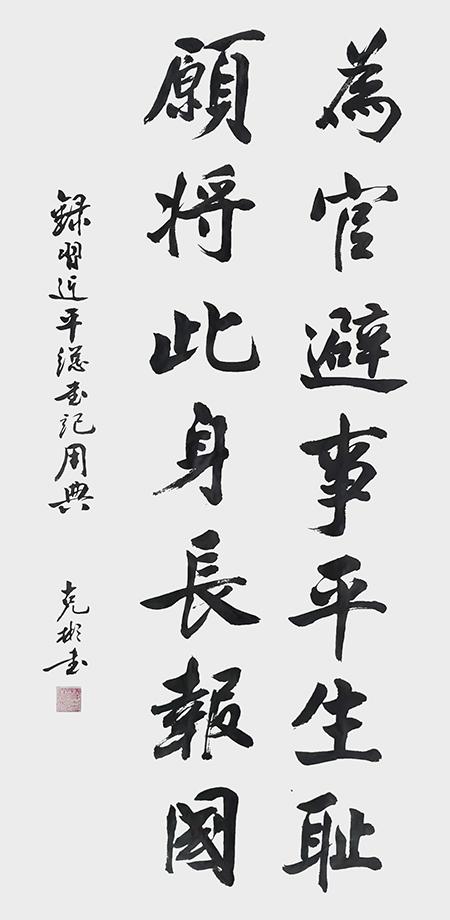 為官避事平生耻
願将此身長報國
録習近平總书记用典
克彬书